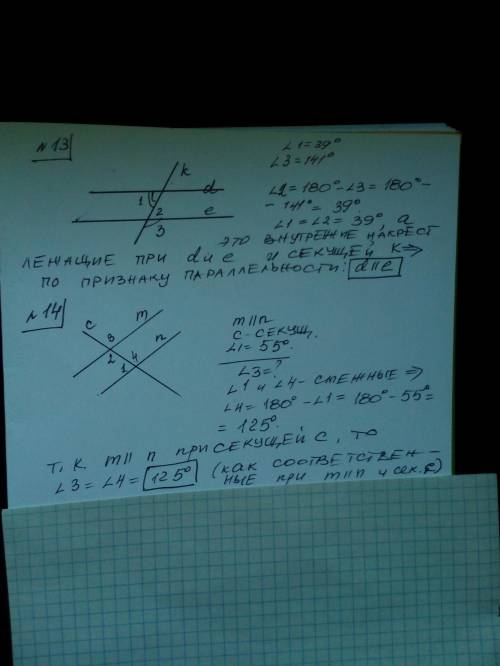 №13
∠1=39°
∠3=141°
k
1 d
2 e
3
∠2=180°-∠3=180°-
-141°=39°
∠1=∠2=39°, а
это внутренние накрест
лежащие при d и e и секущей k ⇒
по признаку параллельности: d∥e
№14
c m
3 n
2 4
1
m∥n
c-секущ.
∠1=55°.
∠3=?
∠1 и ∠4-смежные ⇒
∠4=180°-∠1=180°-55=
=125°.
т.к m∥n при секущей c, то
∠3=∠4=125° (как соответствен-
ные при m∥n и сек.c)